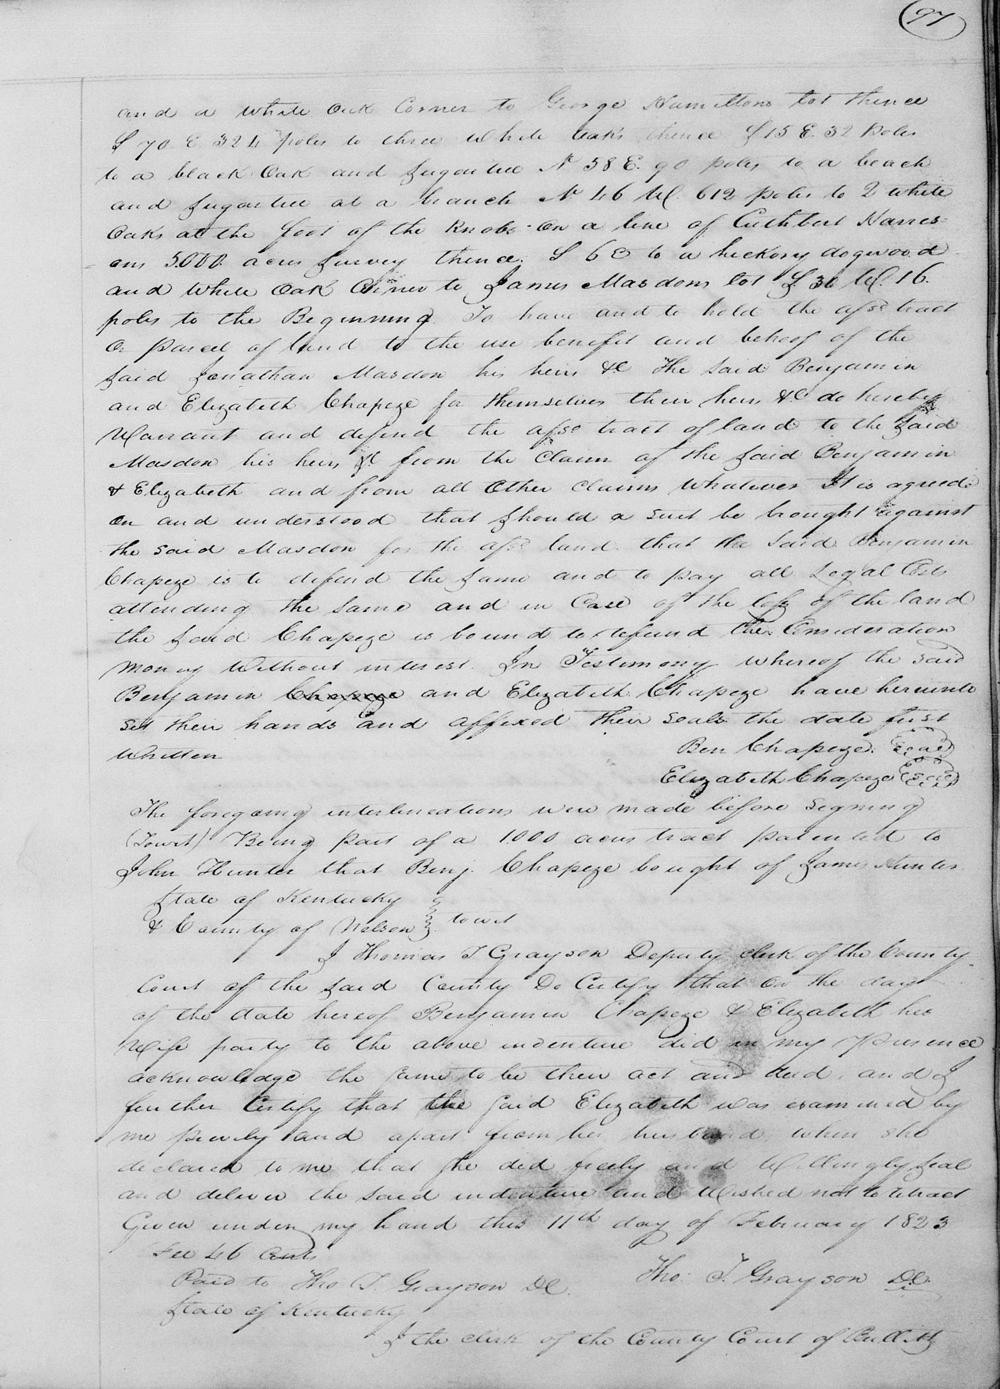 97
and a White Oak Corner to George Hamiltons lot thence
S 70 E 324 poles to three White oaks thence S 15 E. 32 Poles
to a black Oak and sugartree N 58 E. 90 poles to a beach
and sugartree at a branch N 46 W. 612 poles to 2 white
Oaks at the foot of the Knobs on a line of Cuthbert Harris=
ons 5000 acres survey thence S 60 to a hickory dogwood
and White Oak Corner to James Masdons lot S 30 W. 16.
poles to the Beginning To have and to hold the afsd tract
Or parcel of land to the use benefit and behoof of the
said Jonathan Masdon his heirs &C The said Benjamin
and Elizabeth Chapeze for themselves their heirs &C do hereby
Warrant and defend the afsd tract of land to the said
Masdon his heirs &C from the Claim of the said Benjamin
& Elizabeth and from all Other claims Whatever It is agreed
on and understood that should a suit be brought against
the said Masdon for the afsd land that the said Benjamin
Chapeze is to defend the same and to pay all Legal Cost
attending the same and in Case of the loss of the land
the said Chapeze is bound to refund the Consideration
money Without interest. In Testimony whereof the said
Benjamin Chapeze and Elizabeth Chapeze have hereunto
set their hands and affixed their seals the date first
Written Ben Chapeze. Seal
Elizabeth Chapeze Seal
The foregoing interlineations were made before signing
(Towit) Being part of a 1000 acres tract patented to
John Hunter that Benj. Chapeze bought of James Hunter
State of Kentucky
& County of Nelson towit
I Thomas T Grayson Deputy clerk of the County
Court of the said County Do Certify that on the day
of the date hereof Benjamin Chapeze & Elizabeth his
Wife party to the above indenture did in my Presence
acknowledge the same to be their act and deed and I
further Certify that the said Elizabeth was examined by
me privily and apart from her husband when she
declared to me that she did freely and Willingly seal
and deliver the said indenture and Wished not to retract
Given under my hand this 11th day of February 1823
Fee 46 Cents
Paid to Tho T. Grayson DC. Tho: T. Grayson DC.
State of Kentucky
I the clerk of the County Court of Bullitt